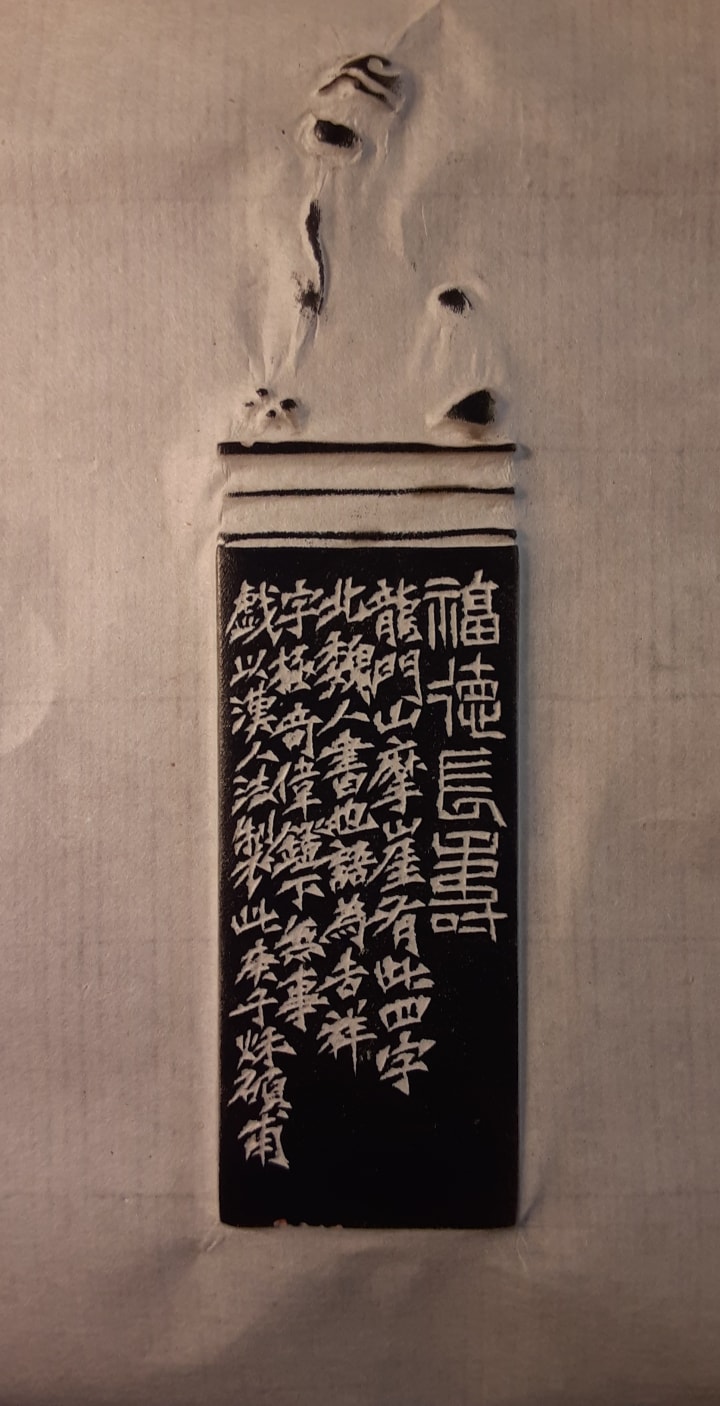 福德長壽
龍門山摩崖有此四字
北魏人書也語為吉祥
字極奇偉鐙下無事
戲以漢人法製此庚子烁碩甫